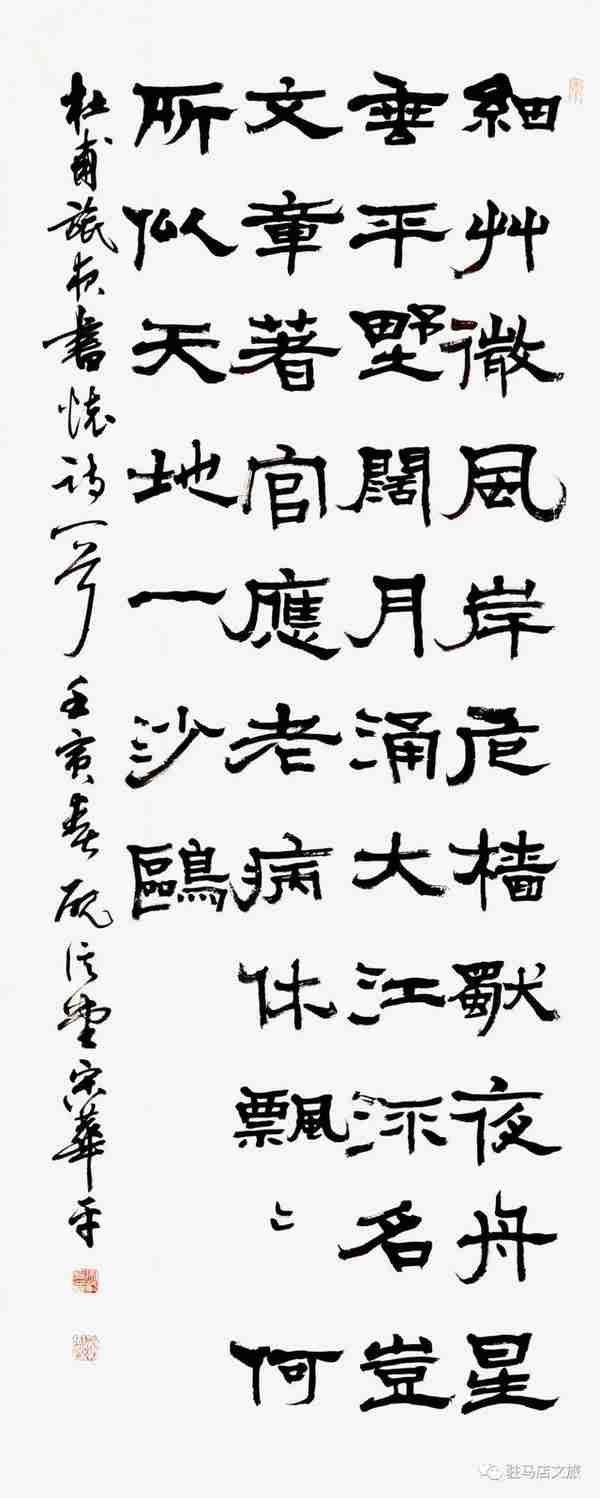 細艸微風岸危檣獨夜舟星
垂平墅闊月涌大江流名豈
文章著官應老病休飄〻何
所似天地一沙鷗
杜甫旅夜書懷詩一首 壬寅春 堂宋華平
驻马店之旅